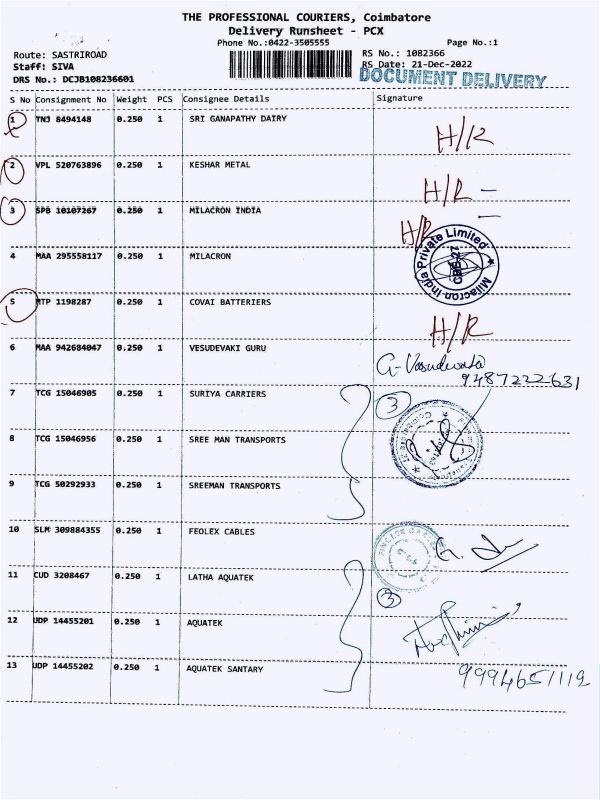 THE PROFESSIONAL COURIERS, Coimbatore
Delivery Runsheet - PCX
Phone No.:0422-3505555 Page No.:1
Route: SASTRIROAD RS No.: 1082366
Staff: SIVA RS Date: 21-Dec-2022
DRS No.: DCJB108236601 DOCUMENT DELIVERY
S No Consignment No Weight PCS Consignee Details Signature
1 TNJ 8494148 0.250 1 SRI GANAPATHY DAIRY
H/R
2 VPL 520763896 0.250 1 KESHAR METAL
H/R
3 SPB 10107267 0.250 1 MILACRON INDIA
H/R
4 MAA 295558117 0.250 1 MILACRON
Milacron India Private Limited
5 MTP 1198287 0.250 1 COVAI BATTERIERS
H/R
6 MAA 942684047 0.250 1 VESUDEVAKI GURU
9487222631
7 TCG 15046905 0.250 1 SURIYA CARRIERS
3
8 TCG 15046956 0.250 1 SREE MAN TRANSPORTS
9 TCG 50292933 0.250 1 SREEMAN TRANSPORTS
10 SLM 309884355 0.250 1 FEOLEX CABLES
11 CUD 3208467 0.250 1 LATHA AQUATEK
3
12 UDP 14455201 0.250 1 AQUATEK
13 UDP 14455202 0.250 1 AQUATEK SANTARY
9994651112